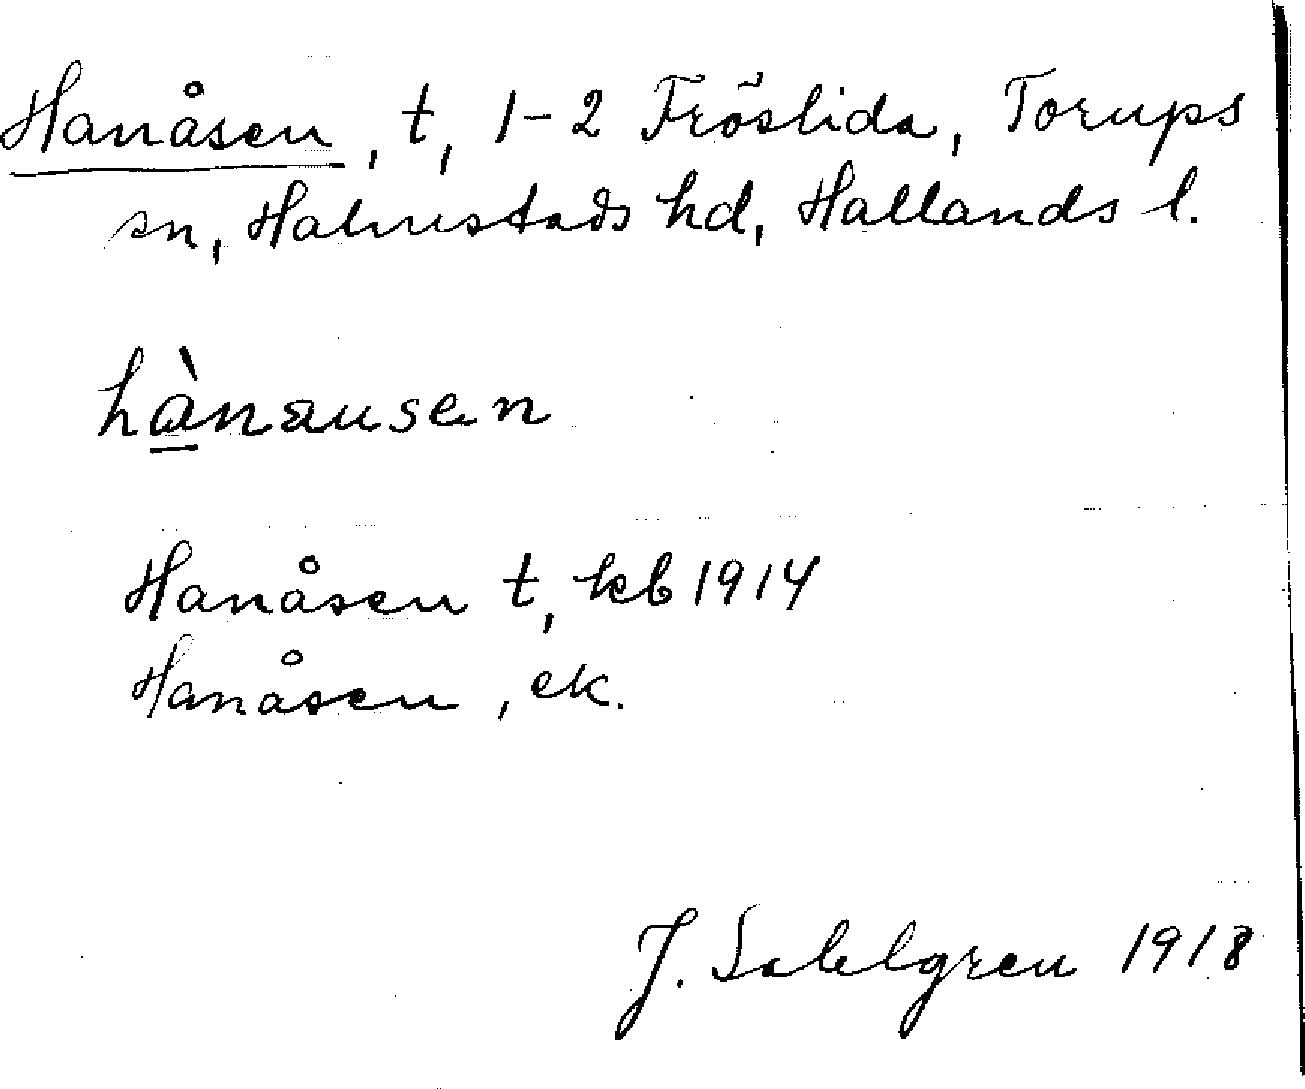 Hanåsen, t, 1-2 Fröslida, Torups
sn, Halmstads hd, Hallands l.
hànausen
Hanåsen t, kb 1914
Hanåsen, ek.
J. Sahlgren 1918